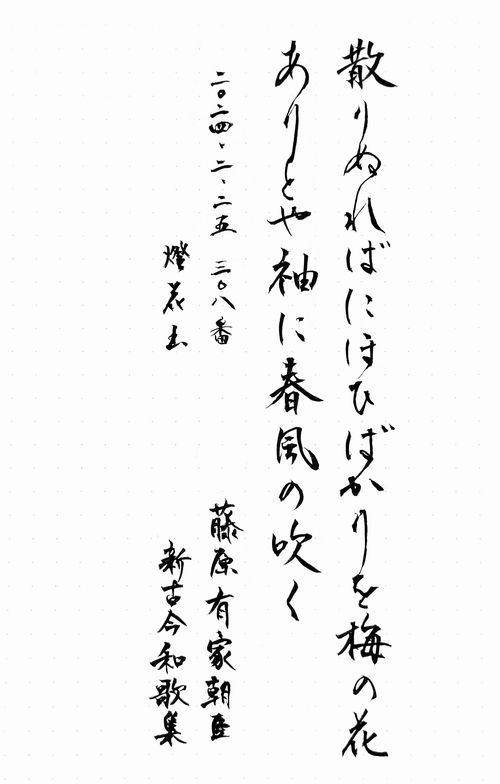 散りぬればにほひばかりを梅の花
ありとや袖に春風の吹く
二〇二四、二、二五 三〇八番
藤原有家朝臣
燈花
新古今和歌集